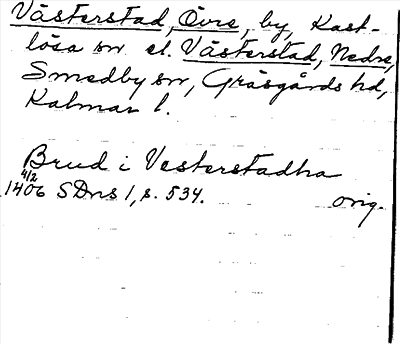 Västerstad, Övre, by, Kast-
lösa sn el. Västerstad, Nedre,
Smedby sn, Gräsgårds hd,
Kalmar l.
Brud i Vesterstadha
4/2
1406 SDns 1, s. 534. orig.